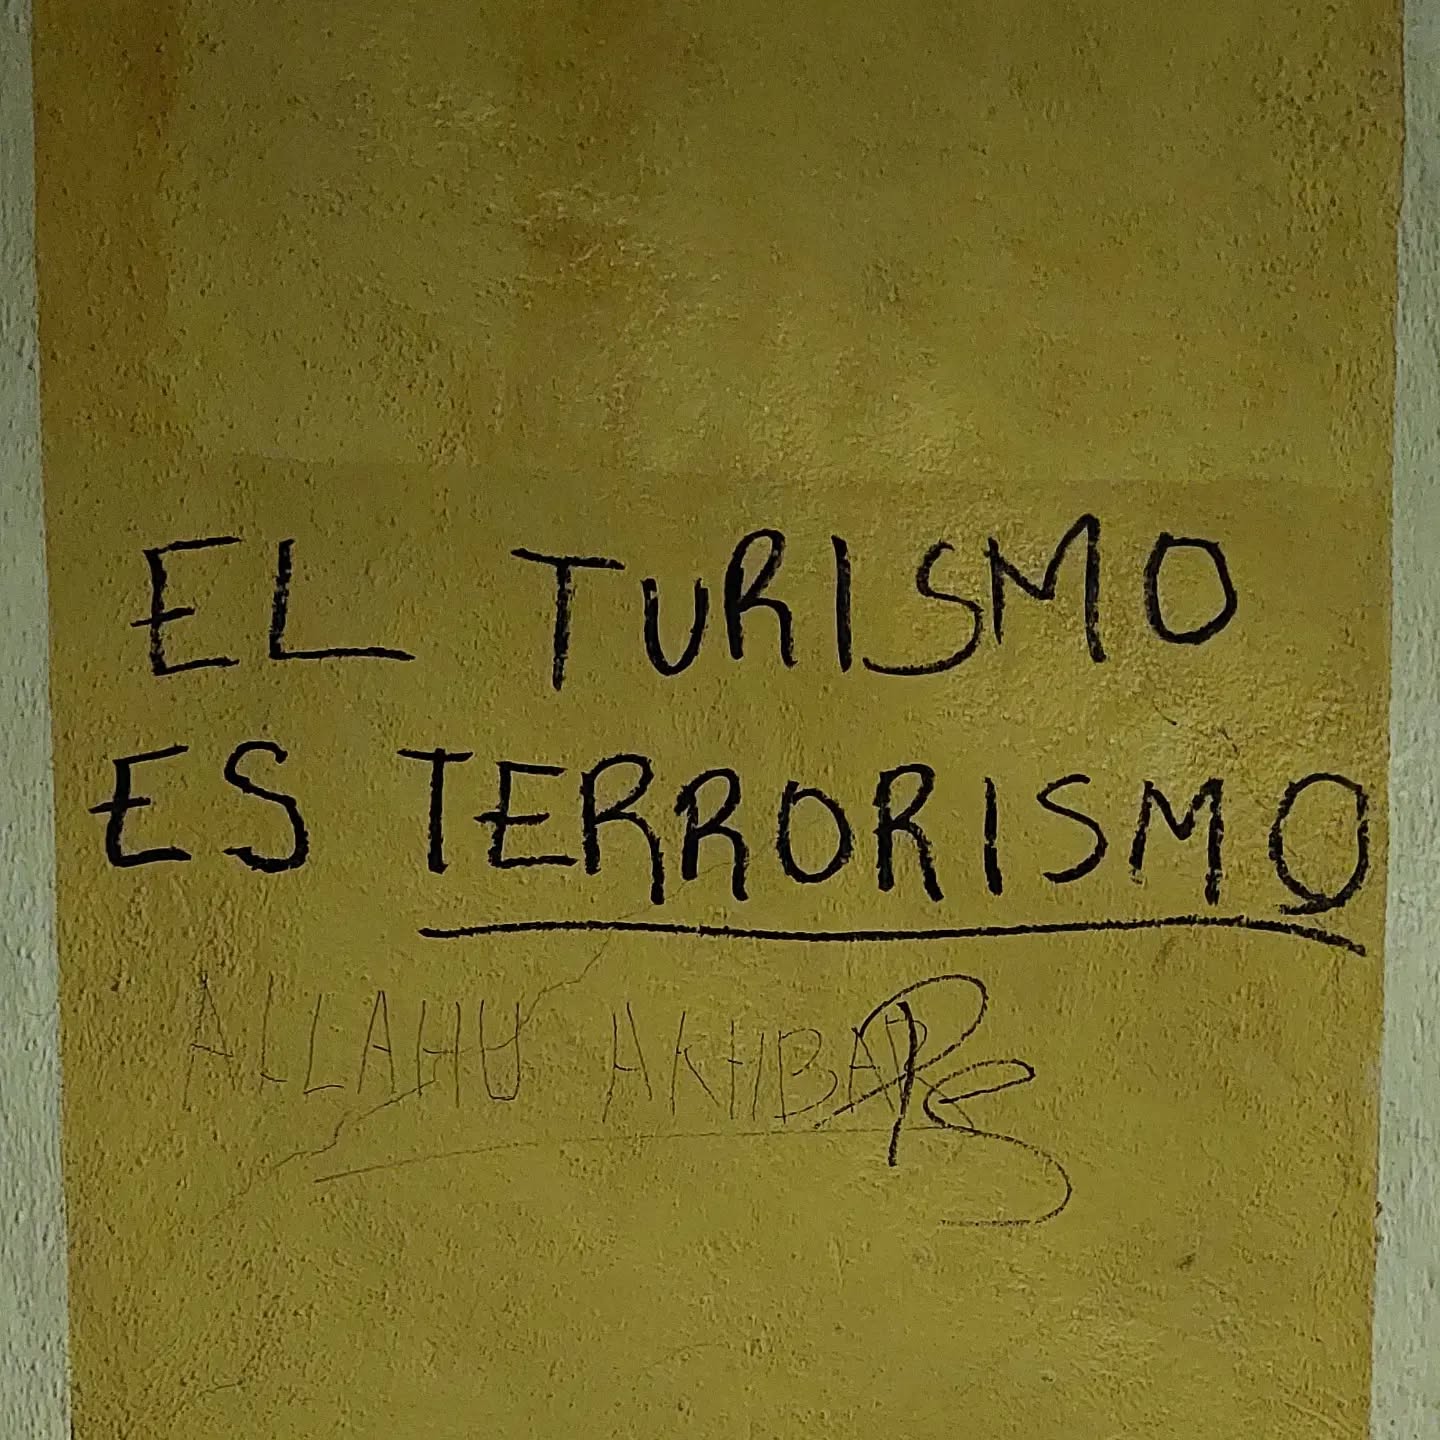 EL TURISMO
ES TERRORISMO
ALLAHU AKHBAR